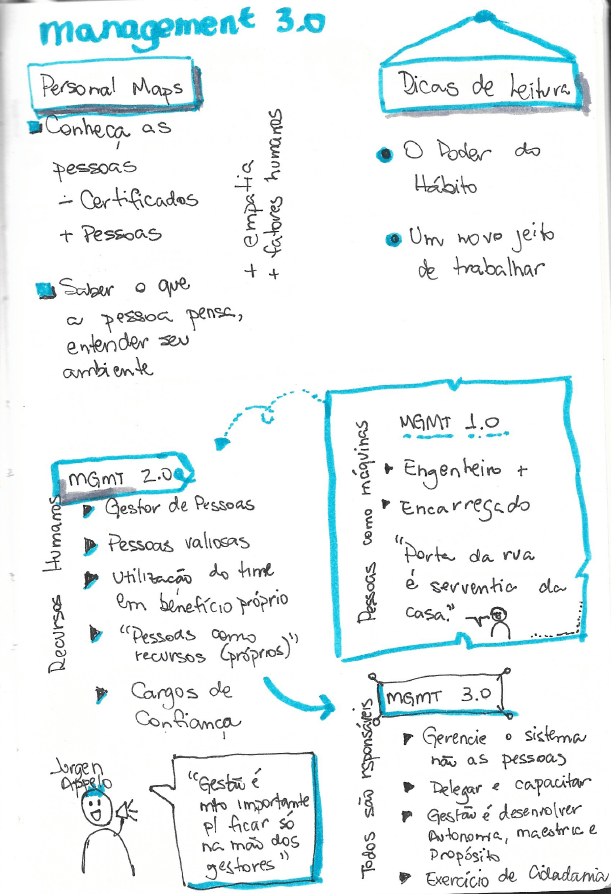 management 3.0
Personal Maps
Conheça as
pessoas
- Certificados
+ Pessoas
Saber o que
a pessoa pensa,
entender seu
ambiente
+ empatia
+ fatores humanos
Dicas de Leitura
O Poder do
Hábito
Um novo jeito
de trabalhar
Pessoas como máquinas
MGMT 1.0
Engenheiro +
Encarregado
"Porta da rua
é serventia da
casa."
Recursos Humanos
MGMT 2.0
Gestor de Pessoas
Pessoas valiosas
Utilização do time
em benefício próprio
"Pessoas como
recursos (próprios)"
Cargos de
Confiança
Todos são rsponsáveis
MGMT 3.0
Gerencie o sistema
não as pessoas
Delegar e capacitar
Gestão é desenvolver
Autonomia, maestria e
Propósito
Exercício de Cidadania
Jurgen
Appelo
"Gestão é
mto importante
p/ ficar só
na mão dos
gestores"